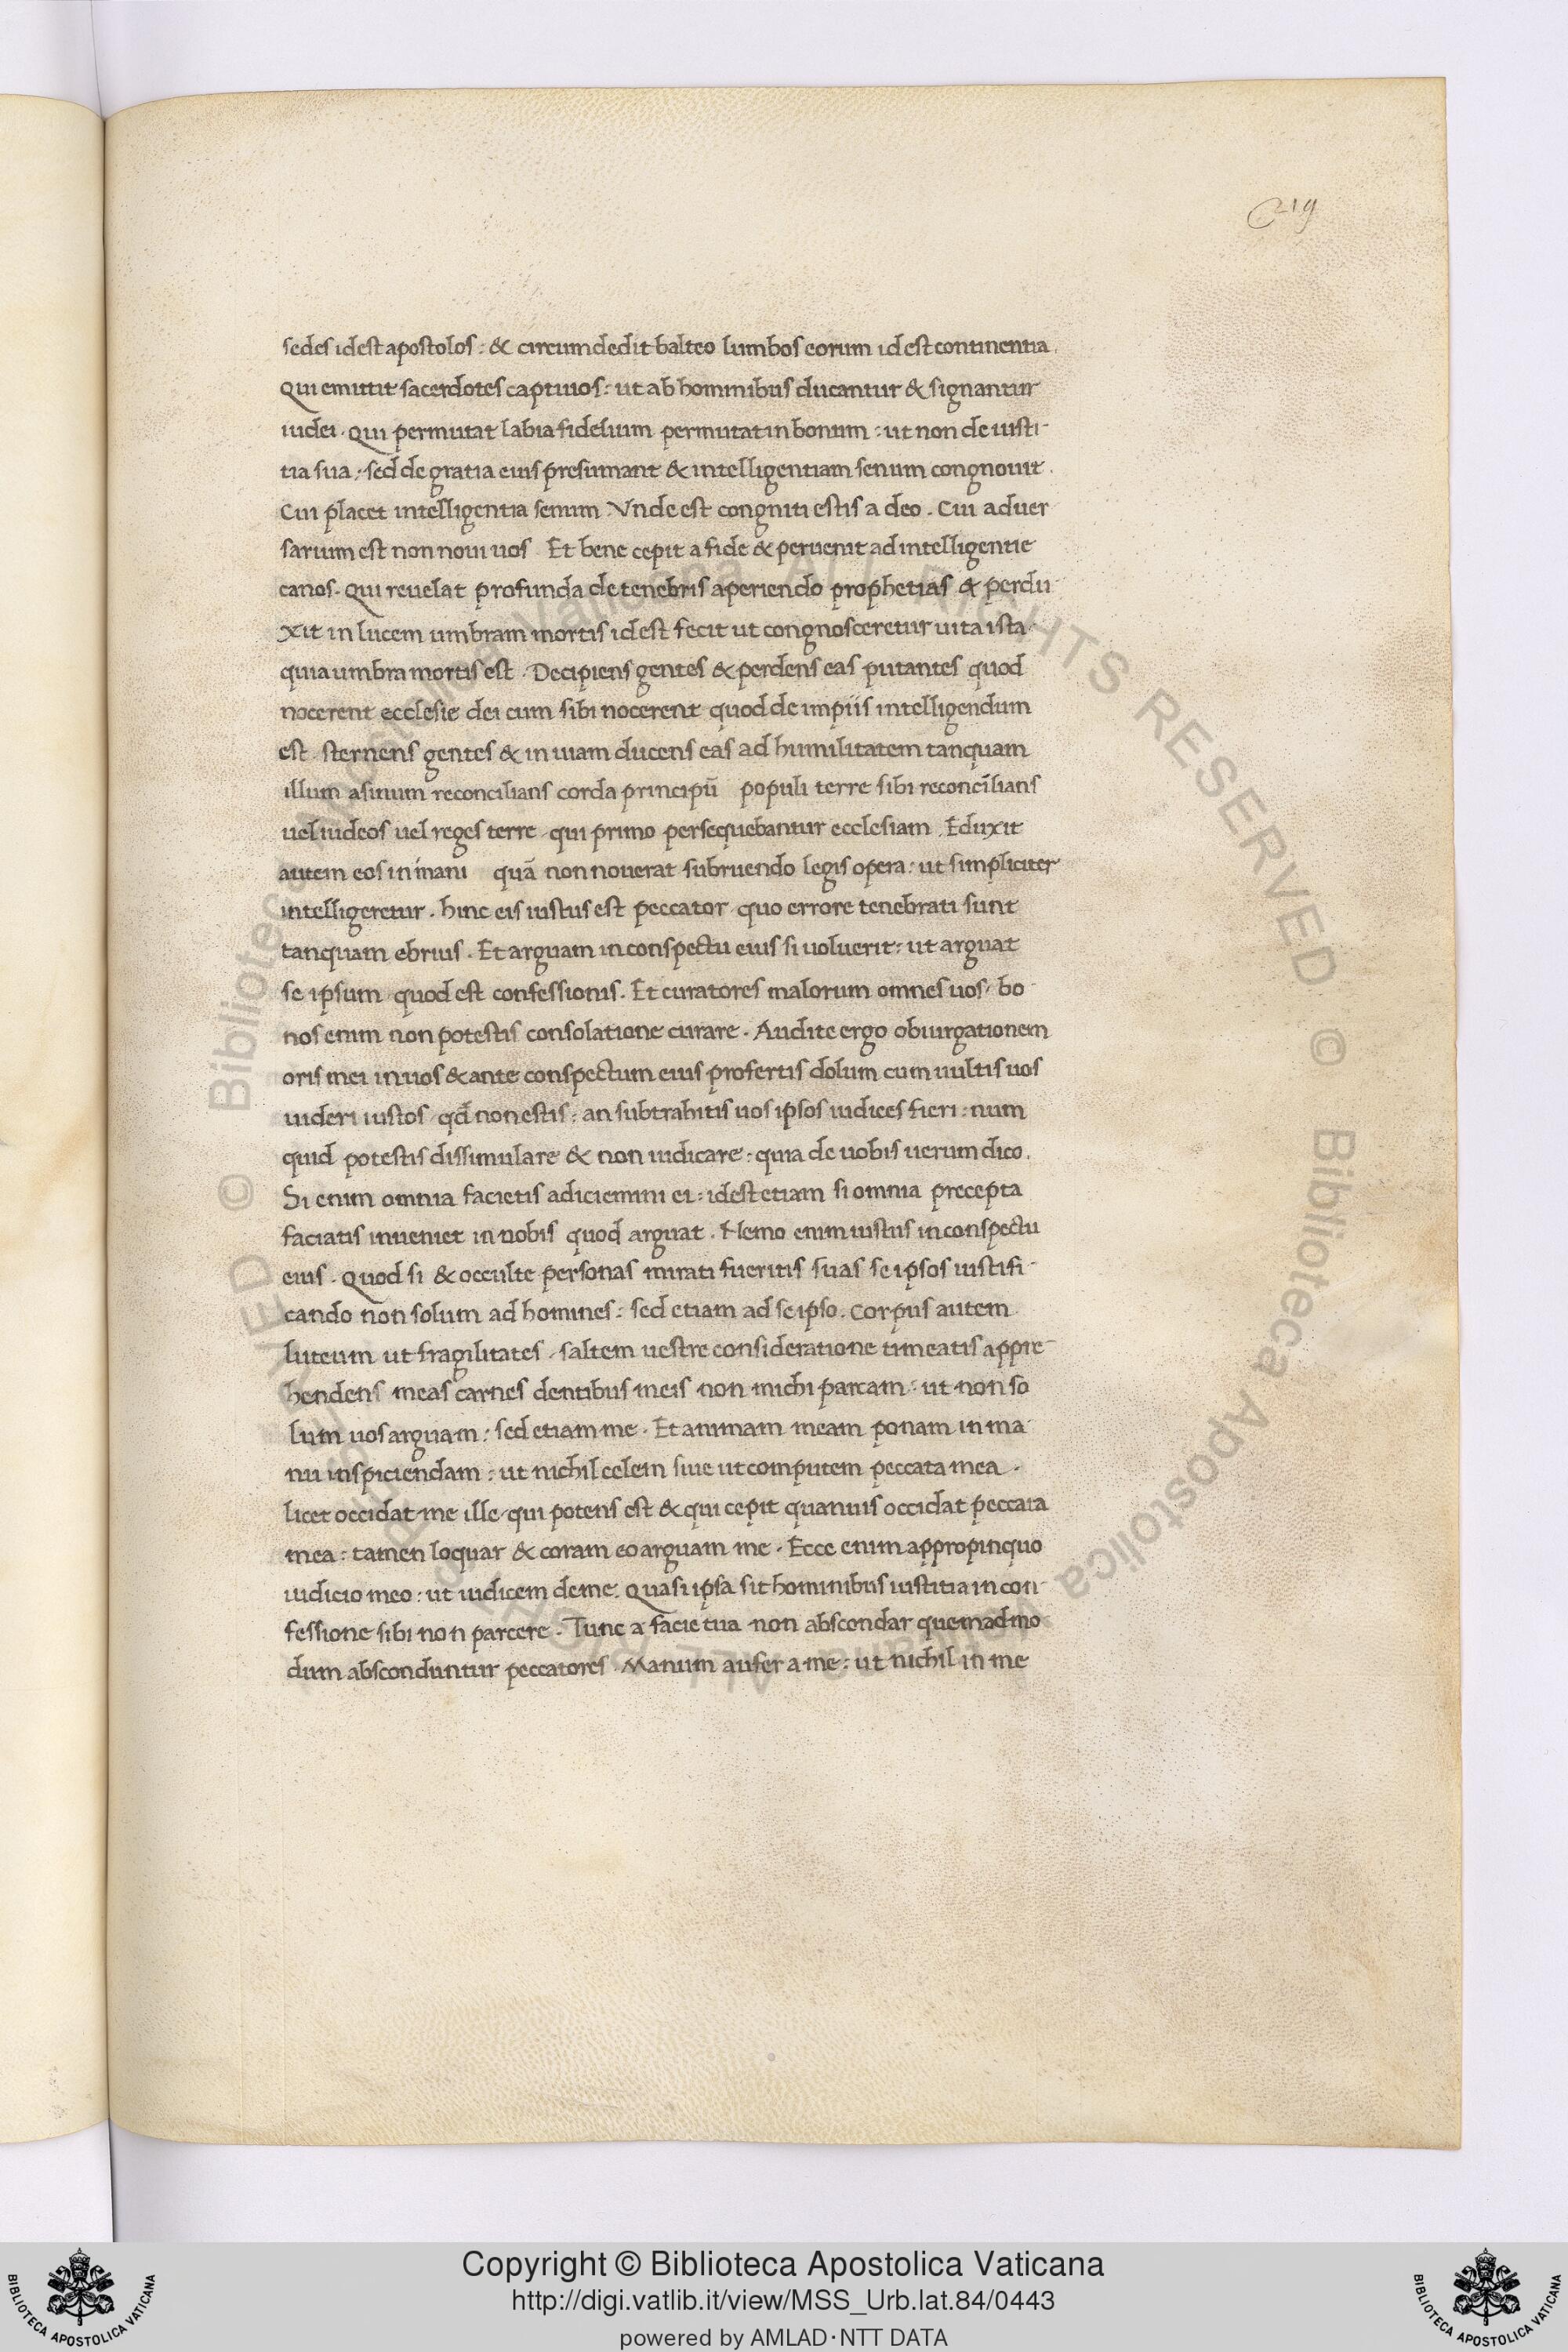 219
sedes idest apostolos : & circumdedit balteo lumbos eorum id est continentia .
Qui emittit sacerdotes captiuos : ut ab hominibus ducantur & signantur
iudei . Qui permutat labia fidelium permutat in bonum : ut non de iusti-
tia sua : sed de gratia eius presumant & intelligentiam senum congnouit .
Cui placet intelligentia senum Vnde est congniti estis a deo . Cui aduer
sarium est non noui uos . Et bene cepit a fide & peruenit ad intelligentie
canos . Qui reuelat profunda de tenebris aperiendo prophetias & perdu-
xit in lucem umbram mortis id est fecit ut congnosceretur uita ista
quia umbra mortis est . Decipiens gentes & perdens eas putantes quod
nocerent ecclesie dei cum sibi nocerent quod de impiis intelligendum
est . sternens gentes & in uiam ducens eas ad humilitatem tanquam
illum asinum reconcilians corda principũ populi terre sibi reconcilians
uel iudeos uel reges terre qui primo persequebantur ecclesiam . Eduxit
autem eos in inani quã non nouerat subruendo legis opera : ut simpliciter
intelligeretur . hinc eis iustus est peccator quo errore tenebrati sunt
tanquam ebrius . Et arguam in conspectu eius si uoluerit : ut arguat
se ipsum quod est confessionis . Et curatores malorum omnes uos bo
nos enim non potestis consolatione curare . Audite ergo obiurgationem
oris mei in uos & ante conspectum eius profertis dolum cum uultis uos
uideri iustos qđ non estis : an subtrahitis uos ipsos iudices fieri : num
quid potestis dissimulare & non iudicare : quia de uobis uerum dico .
Si enim omnia facietis adiciemini ei : idest etiam si omnia precepta
faciatis inueniet in nobis quod arguat . Nemo enim iustus in conspectu
eius . Quod si & occulte personas mirati fueritis suas se ipsos iustifi-
cando non solum ad homines : sed etiam ad se ipso . Corpus autem
luteum ut fragilitates saltem uestre consideratione timeatis appre-
hendens meas carnes dentibus meis non michi parcam : ut non so
lum uos arguam : sed etiam me . Et animam meam ponam in ma
nu inspiciendam : ut nichil celem siue ut computem peccata mea .
licet occidat me ille qui potens est & qui cepit quanuis occidat peccata
mea : tamen loquar & coram eo arguam me . Ecce enim appropinquo
iudicio meo : ut iudicem de me . Quasi ipsa sit hominibus iustitia in con-
fessione sibi non parcere . Tunc a facie tua non abscondar quemadmo
dum absconduntur peccatores . Manum aufer a me : ut nichil in me
Copyright © Biblioteca Apostolica Vaticana
http://digi.vatlib.it/view/MSS_Urb.lat.84/0443
powered by AMLAD·NTT DATA